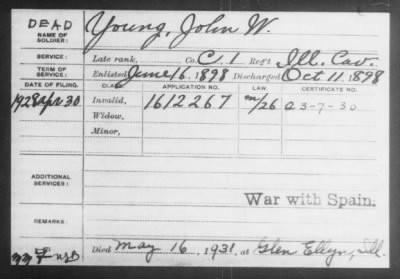 DEAD
NAME OF SOLDIER: Young, John W.
SERVICE: Late rank, Co. C. 1 Reg't Ill. Cav.
TERM OF SERVICE: Enlisted June 16, 1898 Discharged Oct 11, 1898
DATE OF FILING. CLASS. APPLICATION NO. LAW. CERTIFICATE NO.
1928 apr 30 Invalid, 1612267 3-7-30
Widow,
Minor,
ADDITIONAL SERVICES:
War with Spain.
REMARKS:
Died May 16, 1931, at Glen Ellyn, Ill.